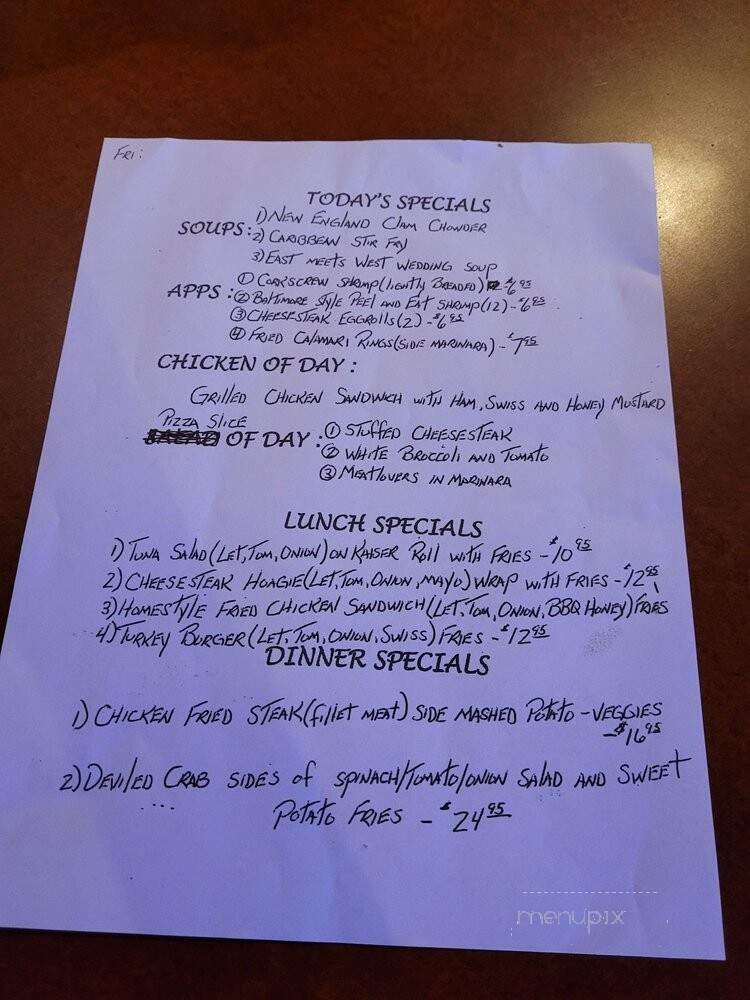 FRI:
TODAY'S SPECIALS
SOUPS: 1) NEW ENGLAND CLAM CHOWDER
2) CARIBBEAN STIR FRY
3) EAST MEETS WEST WEDDING SOUP
APPS: ① CORKSCREW SHRIMP (LIGHTLY BREADED) - $6.95
② BALTIMORE STYLE PEEL AND EAT SHRIMP (12) - $6.95
③ CHEESESTEAK EGGROLLS (2) - $6.95
④ FRIED CALAMARI RINGS (SIDE MARINARA) - $7.95
CHICKEN OF DAY:
GRILLED CHICKEN SANDWICH WITH HAM, SWISS AND HONEY MUSTARD
PIZZA SLICE
OF DAY: ① STUFFED CHEESESTEAK
② WHITE BROCCOLI AND TOMATO
③ MEATLOVERS IN MARINARA
LUNCH SPECIALS
1) TUNA SALAD (LET, TOM, ONION) ON KAISER ROLL WITH FRIES - $10.95
2) CHEESESTEAK HOAGIE (LET, TOM, ONION, MAYO) WRAP WITH FRIES - $12.95
3) HOMESTYLE FRIED CHICKEN SANDWICH (LET, TOM, ONION, BBQ HONEY) FRIES
4) TURKEY BURGER (LET, TOM, ONION, SWISS) FRIES - $12.95
DINNER SPECIALS
1) CHICKEN FRIED STEAK (FILLET MEAT) SIDE MASHED POTATO - VEGGIES
- $16.95
2) DEVILED CRAB SIDES OF SPINACH/TOMATO/ONION SALAD AND SWEET
POTATO FRIES - $24.95
menupix